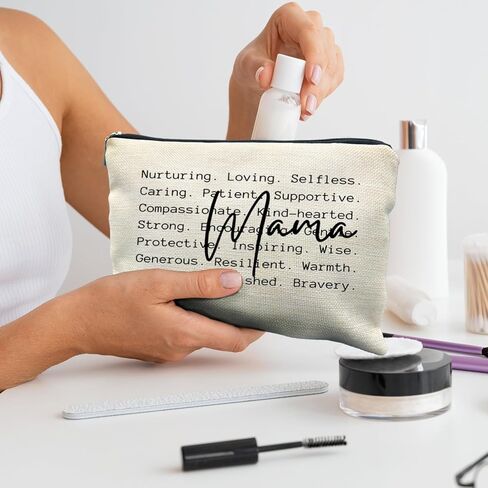 Nurturing. Loving. Selfless.
Caring. Patient. Supportive.
Compassionate. Kind-hearted.
Strong. Encouraging.
Mama
Protective. Inspiring. Wise.
Generous. Resilient. Warmth.
Bravery.